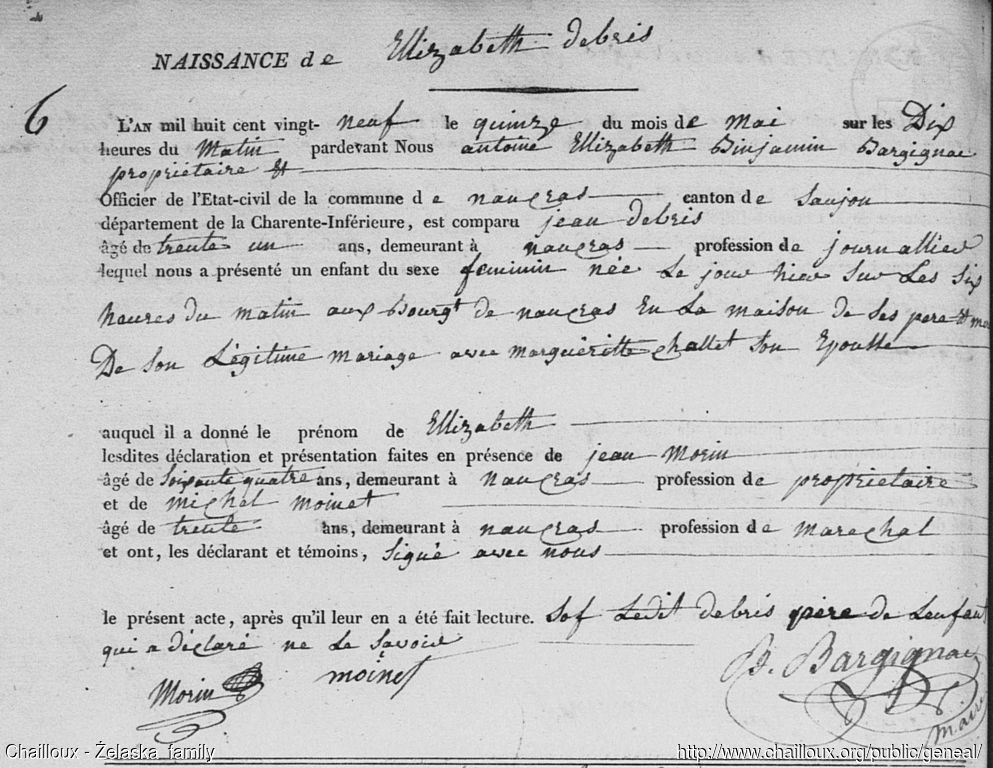 NAISSANCE de Ellizabeth debris
6
L'AN mil huit cent vingt- neuf le quinze du mois de mai sur les Dix
heures du Matin pardevant Nous antoine Ellizabeth Binjamin Bargignac
propriétaire &
Officier de l'Etat-civil de la commune de nancras canton de Saujon
département de la Charente-Inférieure, est comparu jean debris
âgé de trente un ans, demeurant à nancras profession de journallier
lequel nous a présenté un enfant du sexe feminin née Le jour hier Sur Les Six
heures du matin aux Bourgt de nancras En La maison de Ses pere & mere
De son Légitime mariage avec margueritte challet Son Epousse
auquel il a donné le prénom de Ellizabeth
lesdites déclaration et présentation faites en présence de jean Morin
âgé de Soixante quatre ans, demeurant à nancras profession de propriétaire
et de michel moinet
âgé de trente ans, demeurant à nancras profession de marechal
et ont, les déclarant et témoins, Signé avec nous
le présent acte, après qu'il leur en a été fait lecture. Sof Ledit debris père de Lenfant
qui a déclaré ne Le Savoir
Morin moinet B. Bargignac
maire
Chailloux - Żelaska family http://www.chailloux.org/public/geneal/